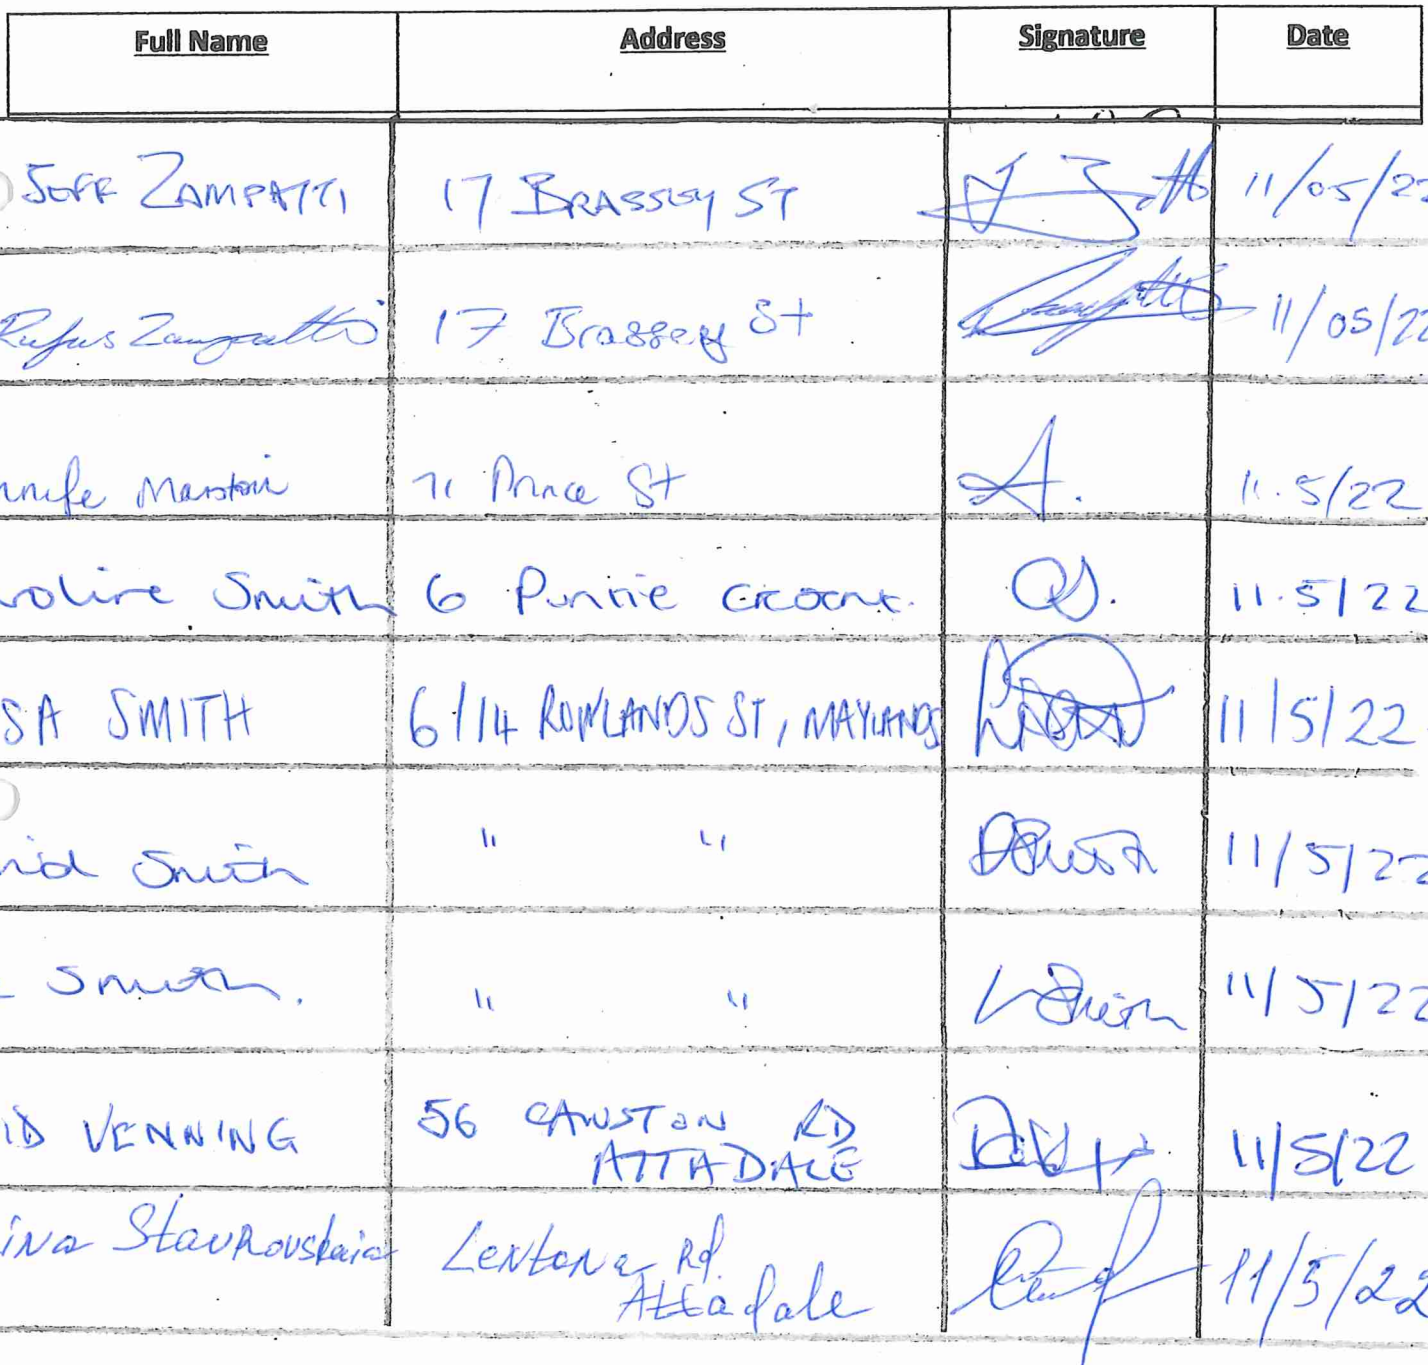 Full Name Address Signature Date
JEFF ZAMPATTI 17 BRASSEY ST 11/05/22
Rufus Zampatti 17 Brassey St 11/05/22
nnife 71 Prince St 11.5/22
roline Smith 6 11.5/22
SA SMITH 6/14 ROWLANDS ST, MAYLANDS 11/5/22
vid Smith " " 11/5/22
Smith. " " 11/5/22
ID VENNING 56 CAWSTON RD 11/5/22
ATTADALE
ina Staurovskaia Lentona Rd. 11/5/22
Attadale